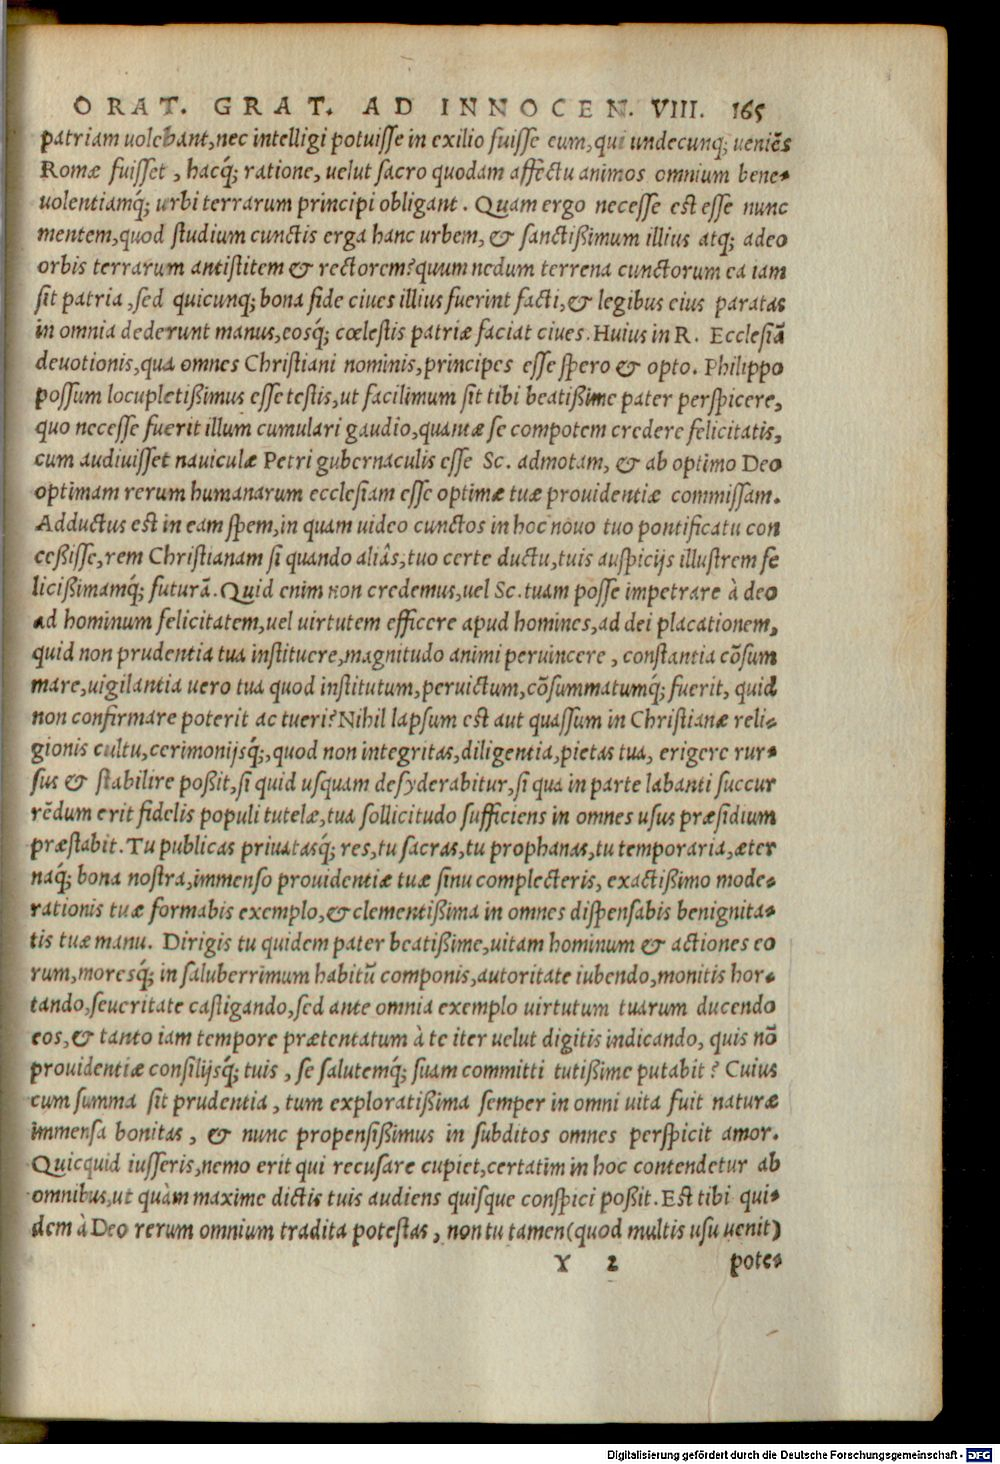 ORAT. GRAT. AD INNOCEN. VIII. 165
patriam uolebant,nec intelligi potuisse in exilio fuisse eum,qui undecunq; ueniẽs
Romæ fuisset , hacq́; ratione, uelut sacro quodam affectu animos omnium bene-
uolentiamq́; urbi terrarum principi obligant . Quam ergo necesse est esse nunc
mentem,quod studium cunctis erga hanc urbem, & sanctißimum illius atq; adeo
orbis terrarum antistitem & rectorem?quum nedum terrena cunctorum ea iam
sit patria ,sed quicunq; bona fide ciues illius fuerint facti,& legibus eius paratas
in omnia dederunt manus,eosq́; cœlestis patriæ faciat ciues. Huius in R. Ecclesiã
deuotionis,qua omnes Christiani nominis,principes esse spero & opto. Philippo
possum locupletißimus esse testis,ut facilimum sit tibi beatißime pater perspicere,
quo necesse fuerit illum cumulari gaudio,quantæ se compotem credere felicitatis,
cum audiuisset nauiculæ Petri gubernaculis esse Sc. admotam, & ab optimo Deo
optimam rerum humanarum ecclesiam esse optimæ tuæ prouidentiæ commissam.
Adductus est in eam spem,in quam uideo cunctos in hoc nouo tuo pontificatu con
ceßisse,rem Christianam si quando aliâs,tuo certe ductu,tuis auspicijs illustrem fe
licißimamq́; futurã. Quid enim non credemus,uel Sc. tuam posse impetrare à deo
ad hominum felicitatem,uel uirtutem efficere apud homines,ad dei placationem,
quid non prudentia tua instituere,magnitudo animi peruincere , constantia cõsum
mare,uigilantia uero tua quod institutum,peruictum,cõsummatumq́; fuerit, quid
non confirmare poterit ac tueri?Nihil lapsum est aut quassum in Christianæ reli-
gionis cultu,cerimonijsq́;,quod non integritas,diligentia,pietas tua, erigere rur-
sus & stabilire poßit,si quid usquam desyderabitur,si qua in parte labanti succur
rẽdum erit fidelis populi tutelæ,tua sollicitudo sufficiens in omnes usus præsidium
præstabit. Tu publicas priuatasq́; res,tu sacras,tu prophanas,tu temporaria,æter
naq́; bona nostra,immenso prouidentiæ tuæ sinu complecteris, exactißimo mode-
rationis tuæ formabis exemplo,& clementißima in omnes dispensabis benignita-
tis tuæ manu. Dirigis tu quidem pater beatißime,uitam hominum & actiones eo
rum,moresq́; in saluberrimum habitũ componis,autoritate iubendo,monitis hor-
tando,seueritate castigando,sed ante omnia exemplo uirtutum tuarum ducendo
eos,& tanto iam tempore prætentatum à te iter uelut digitis indicando, quis nõ
prouidentiæ consilijsq́; tuis , se salutemq́; suam committi tutißime putabit? Cuius
cum summa sit prudentia , tum exploratißima semper in omni uita fuit naturæ
immensa bonitas , & nunc propensißimus in subditos omnes perspicit amor.
Quicquid iusseris,nemo erit qui recusare cupiet,certatim in hoc contendetur ab
omnibus,ut quàm maxime dictis tuis audiens quisque conspici poßit. Est tibi qui-
dem à Deo rerum omnium tradita potestas , non tu tamen(quod multis usu uenit)
Y 2 pote-
Digitalisierung gefördert durch die Deutsche Forschungsgemeinschaft - DFG